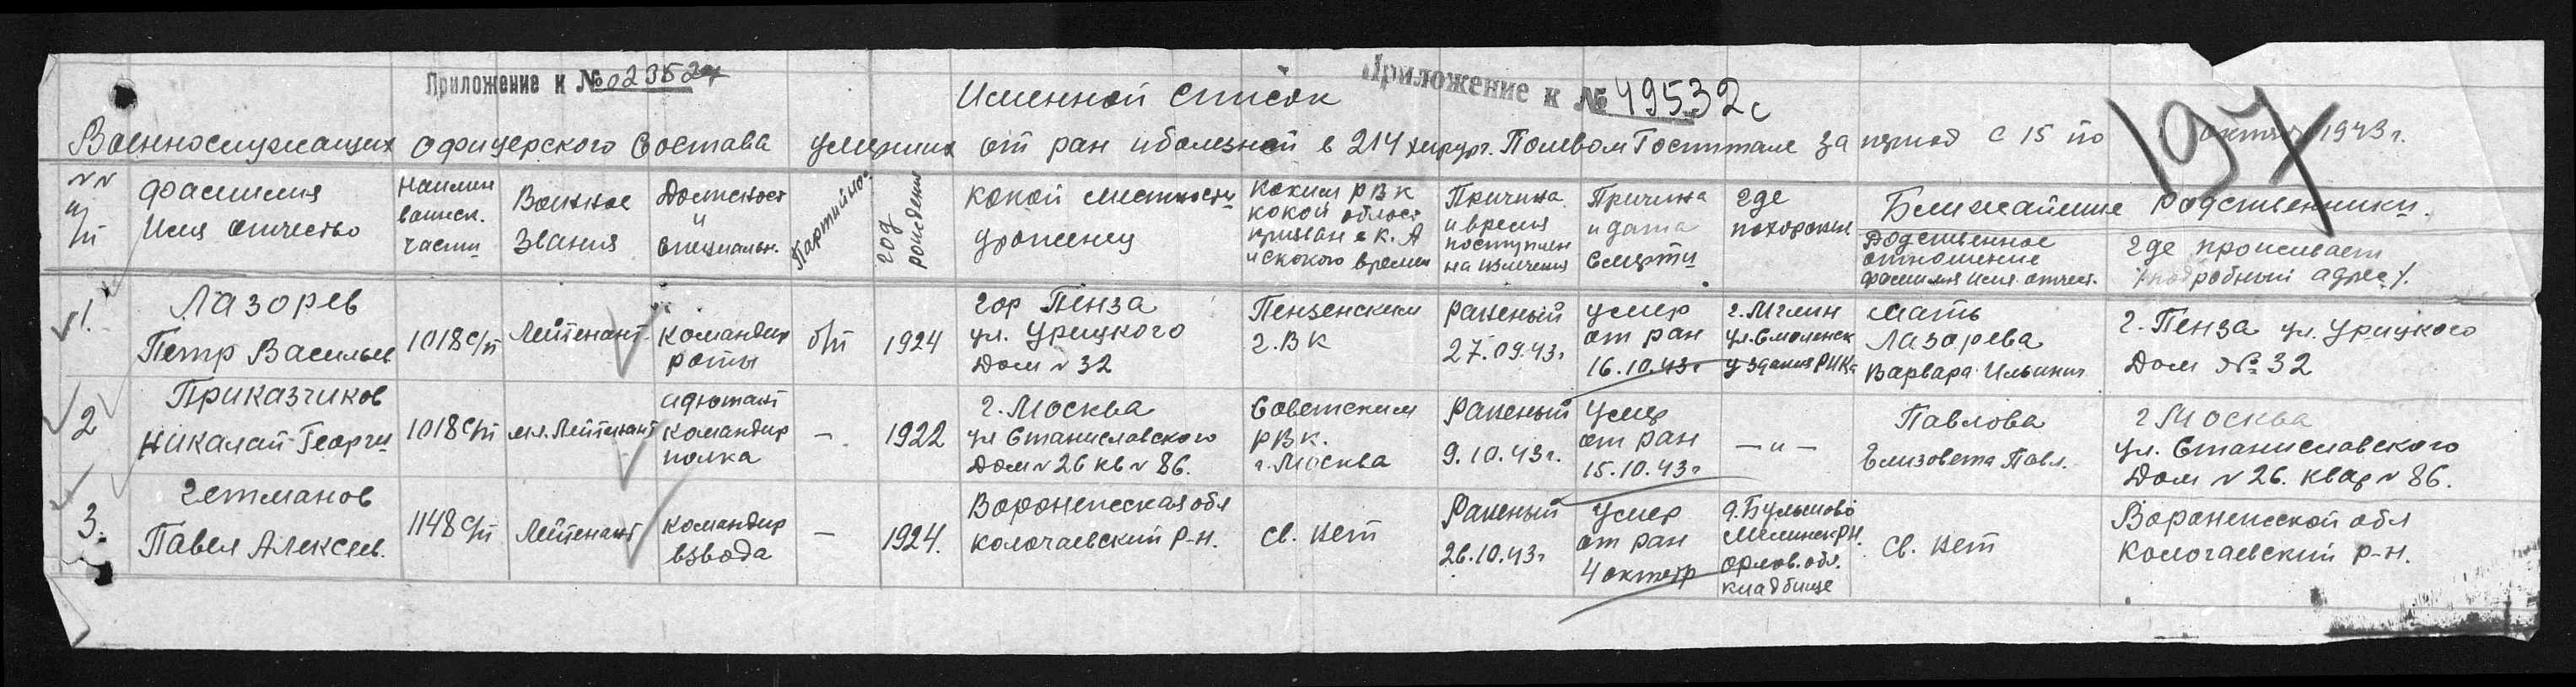 Приложение к № 02352
Приложение к № 49532с
197
Именной список
Военнослужащих офицерского состава умерших от ран и болезней в 214 хирург. Полевом Госпитале за период с 15 по октяб 1943 г.
№№ п/п
фамилия
Имя отчество
Наимен
воинск.
части
Воинное
Звания
Должност
и
специальн.
Партийнос
год
рождения
какой местности
уроженец
Каким РВК
какой област
призван в К. А
и скокого времен
Причина
и время
поступлен
на излечения
Причина
и дата
смерти
где
похоронен
Ближайшие Родственники.
Родственное
отношение
фамилия имя отчест.
где проживает
/подробный адрес/.
1.
Лазорев
Петр Васильев
1018 с/п
Лейтенант
командир
роты
б/п
1924
гор Пенза
ул. Урицкого
Дом № 32
Пензенским
г. В К
Раненый
27.09.43г
умер
от ран
16.10.43г
г. Мглин
ул. Смоленск
у здания РИКа
мать
Лазорева
Варвара Ильинич
г. Пенза ул. Урицкого
Дом № 32
2
Приказчиков
Николай Георги
1018 с/п
мл. Лейтенант
адютант
командир
полка
—
1922
г. Москва
ул Станиславского
Дом № 26 кв № 86.
Советским
РВК.
г. Москва
Раненый
9.10.43г.
Умер
от ран
15.10.43г
— " —
Павлова
Елизовета Павл.
г Москва
ул. Станиславского
Дом № 26. квар № 86.
3.
Гетманов
Павел Алексеев.
1148 с/п
Лейтенант
командир
взвода
—
1924.
Воронежская обл
колочаевский р-н.
св. нет
Раненый
26.10.43г
Умер
от ран
4 октяб
Мглинск РН.
орлов. обл.
кладбище
св. нет
Воронежской обл
Колочаевский р-н.